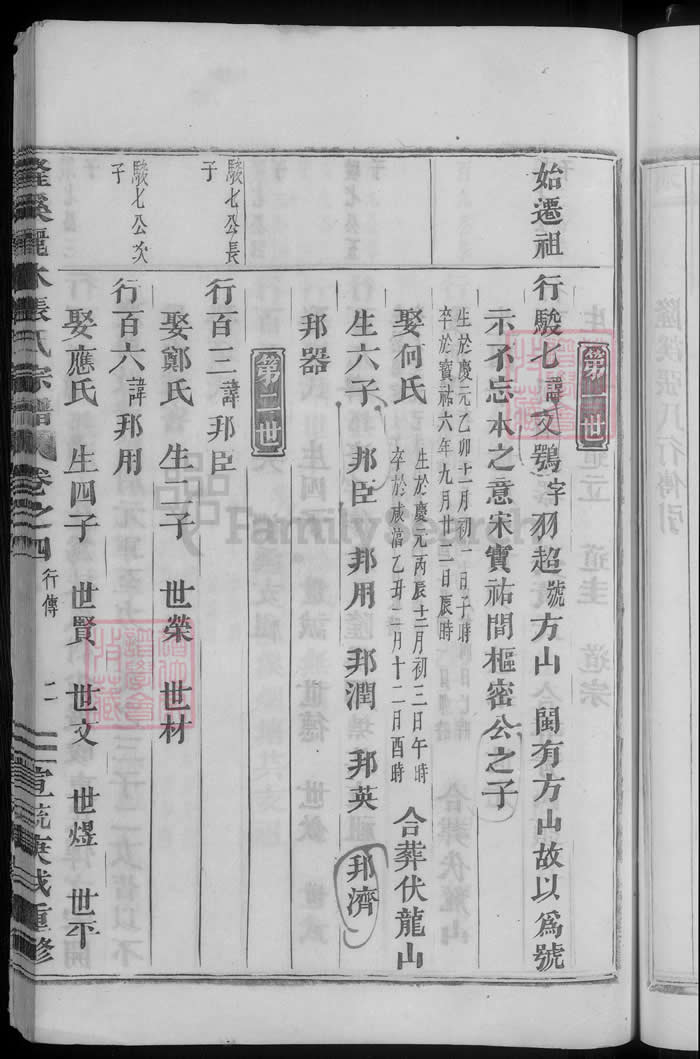 第一世
始遷祖
行駿七諱文鶚字羽超號方山閩有方山故以為號
示不忘本之意宋寳祐間樞密公之子
生於慶元乙卯十一月初一日子時
卒於寶祐六年九月廿三日辰時
娶何氏
生於慶元丙辰十二月初三日午時
卒於咸淳乙丑二月十二日酉時
合葬伏龍山
生六子 邦臣 邦用 邦潤 邦英 邦濟
邦器
第二世
駿七公長子
行百三諱邦臣
娶鄭氏 生二子 世榮 世材
駿七公次子
行百六諱邦用
娶應氏 生四子 世賢 世文 世煜 世平
隆溪麗水張氏宗譜 卷之四 行傳 二 宣統庚戌重修
隆溪張氏行傳引
FamilySearch